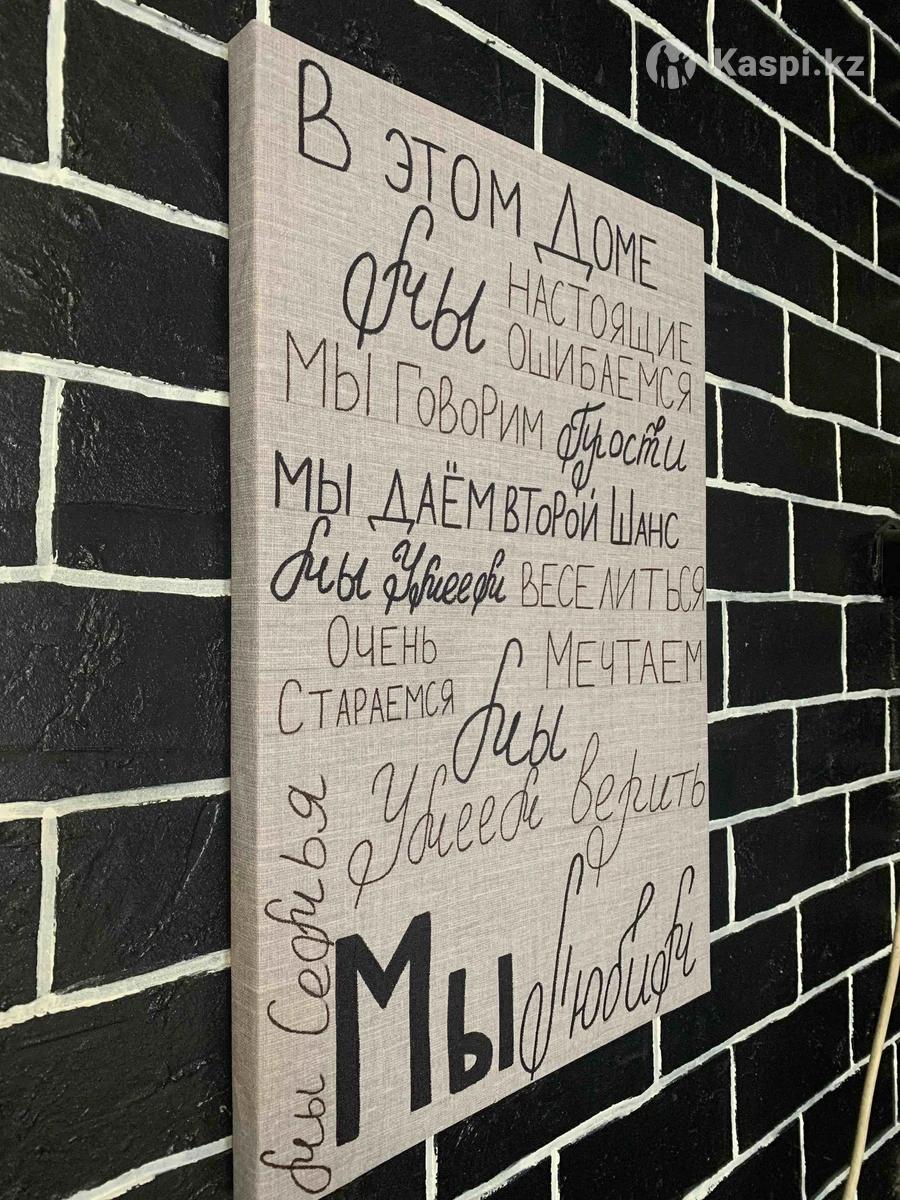 Kaspi.kz
В ЭТОМ ДОМЕ
Мы НАСТОЯЩИЕ
ОШИБАЕМСЯ
МЫ ГОВОРИМ Прости
МЫ ДАЁМ ВТОРОЙ ШАНС
Мы Умеем ВЕСЕЛИТЬСЯ
ОЧЕНЬ
СТАРАЕМСЯ
МЕЧТАЕМ
Мы
Умеем верить
Мы Любим
Мы Семья